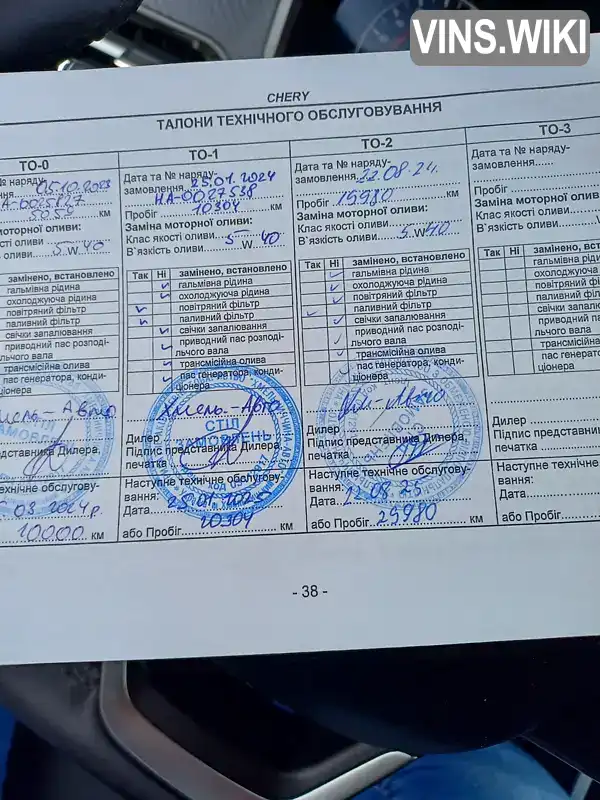 VINS.WIKI
CHERY
ТАЛОНИ ТЕХНІЧНОГО ОБСЛУГОВУВАННЯ
ТО-0
№ наряду-
05.10.2023
5055 км
Заміна моторної оливи:
якості оливи
оливи 5 W 40
замінено, встановлено
гальмівна рідина
охолоджуюча рідина
повітряний фільтр
паливний фільтр
свічки запалювання
приводний пас розподі-
льчого вала
трансмісійна олива
пас генератора, конди-
ціонера
представника Дилера,
технічне обслугову-
10000 км
ТО-1
Дата та № наряду-
замовлення 25.01.2024
НА-0027538
Пробіг 10304 км
Заміна моторної оливи:
Клас якості оливи
В`язкість оливи 5 W 40
Так Ні замінено, встановлено
гальмівна рідина
охолоджуюча рідина
повітряний фільтр
паливний фільтр
свічки запалювання
приводний пас розподі-
льчого вала
трансмісійна олива
пас генератора, конди-
ціонера
Хмель-Авто
СТІЛ
ЗАМОВЛЕНЬ
Дилер
Підпис представника Дилера,
печатка
Наступне технічне обслугову-
вання:
Дата 25.01.2025
20304
або Пробіг км
ТО-2
Дата та № наряду-
замовлення 22.08.24
Пробіг 19980 км
Заміна моторної оливи:
Клас якості оливи
В`язкість оливи 5 W 40
Так Ні замінено, встановлено
гальмівна рідина
охолоджуюча рідина
повітряний фільтр
паливний фільтр
свічки запалювання
приводний пас розподі-
льчого вала
трансмісійна олива
пас генератора, конди-
ціонера
Дилер
Підпис представника Дилера,
печатка
Наступне технічне обслугову-
вання:
Дата 22.08.25
або Пробіг 29980 км
ТО-3
Дата та № наряду-
замовлення
Пробіг
Заміна моторної оливи:
Клас якості оливи
В`язкість оливи
Так Ні замінено, встановлено
гальмівна рідина
охолоджуюча рідина
повітряний фільтр
паливний фільтр
свічки запалювання
приводний пас
льчого вала
трансмісійна
пас генератора
ціонера
Дилер
Підпис представника
печатка
Наступне технічне
вання:
Дата
або Пробіг
- 38 -